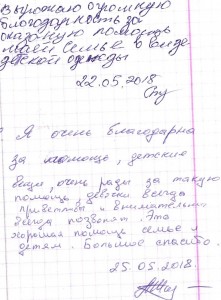 Выражаю огромную
благодарность за
оказанную помощь
моей семье в виде
детской одежды
22.05.2018
Я очень благодарна
за помощь, детские
вещи, очень рады за такую
помощь, девочки всегда
приветливы и внимательны
всегда позвонят. Это
хорошая помощь семье и
детям. Большое спасибо.
25.05.2018.